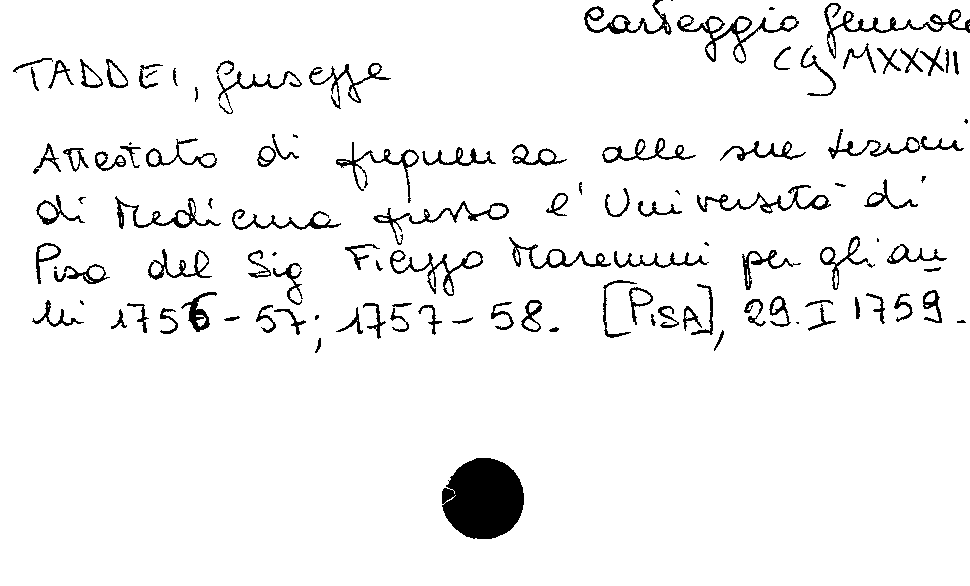 Carteggio Generale
CG MXXXII
TADDEI, Giuseppe
Attestato di frequenza alle sue lezioni
di Medicina presso l'Università di
Pisa del Sig Filippo Maremmi per gli an
ni 1756-57; 1757-58. [PISA], 29.I 1759.